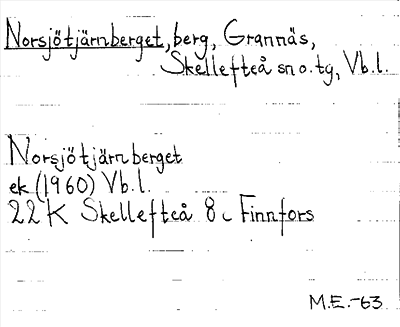 Norsjötjärnberget, berg, Grannäs,
Skellefteå sn o. tg, Vb. l.
Norsjötjärnberget
ek (1960) Vb. l.
22 K Skellefteå 8 c Finnfors
M.E.-63